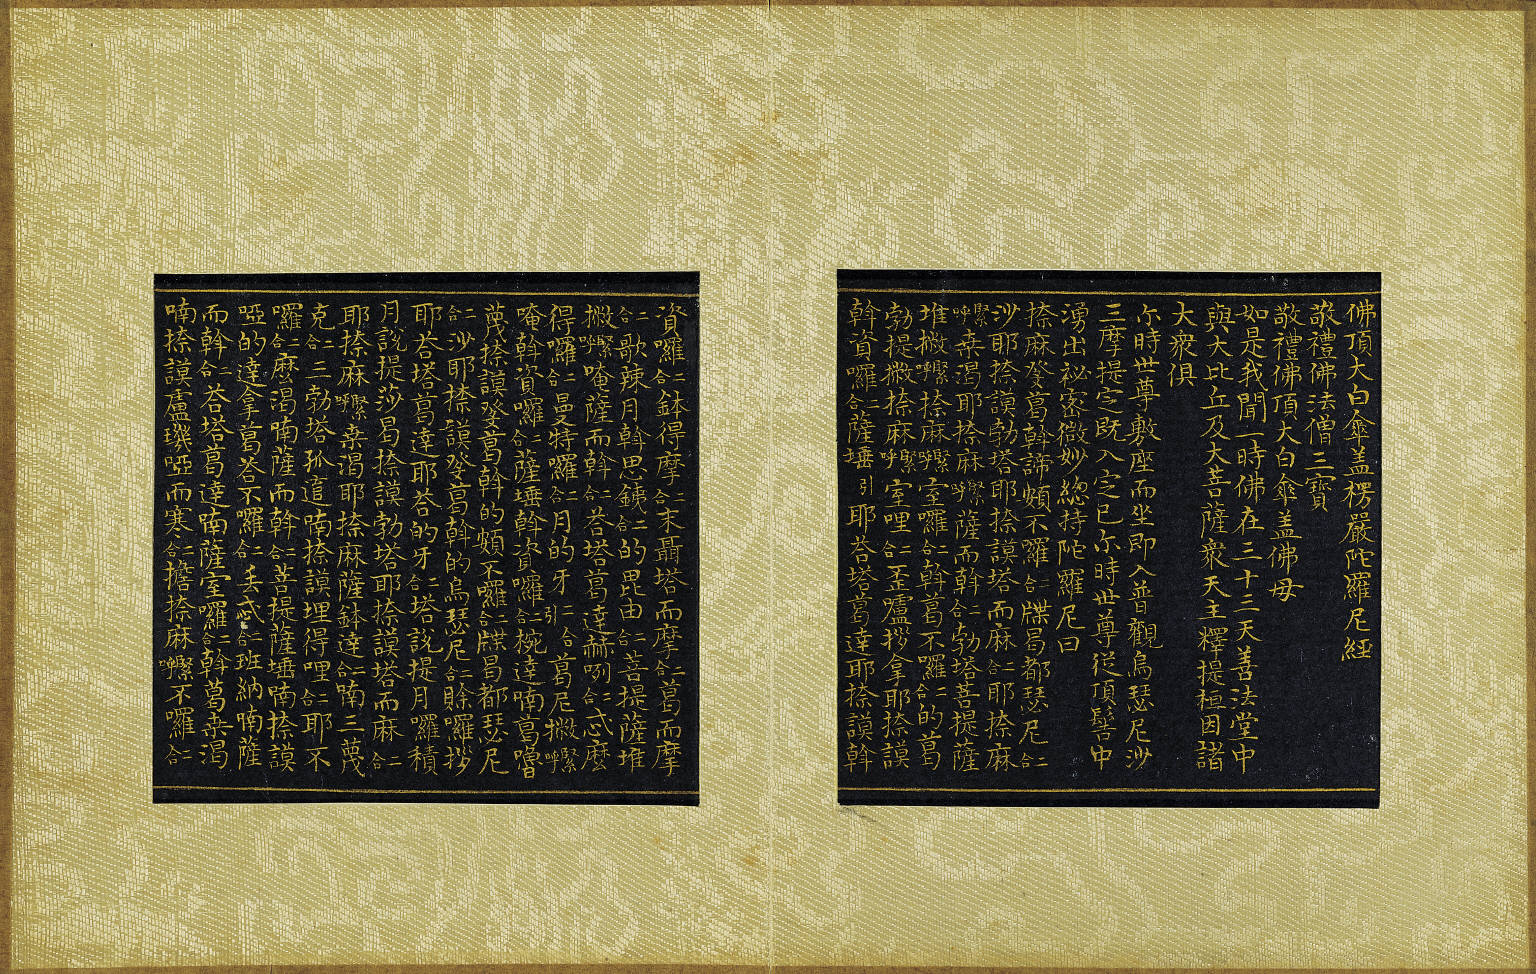 佛頂大白傘盖楞嚴陀羅尼經
敬禮佛法僧三寶
敬禮佛頂大白傘盖佛母
如是我聞一時佛在三十三天善法堂中
與大比丘及大菩薩衆天主釋提桓因諸
大衆俱
尒時世尊敷座而坐即入普觀烏瑟尼沙
三摩提定既入定已尒時世尊從頂髻中
湧出祕密微妙總持陀羅尼曰
捺麻發葛斡諦頗不羅二合牒曷都瑟尼二合
沙耶捺謨勃塔耶捺謨勃塔而麻二合耶捺麻
緊呼桒渴耶捺麻緊呼薩而斡二合勃塔菩提薩
堆撇緊呼捺麻緊呼室囉二合斡葛不囉二合的葛
勃提撇捺麻緊呼室哩二合歪嚧拶拿耶捺謨
斡資囉二合薩埵引耶荅塔葛達耶捺謨斡
資囉二合鉢得摩二合末聶塔而摩二合葛而摩
二合歌辣月斡思銕二合的毘由二合菩提薩堆
撇緊呼唵薩而斡二合荅塔葛達赫咧二合忒麼
得囉二合曼特囉二合月的牙二合引葛尼撇緊呼
唵斡資囉二合薩埵斡資囉二合椀達喃葛嚕
蔑捺謨發葛斡的頗不囉二合牒曷都瑟尼
二合沙耶捺謨發葛斡的烏瑟尼二合賖囉拶
耶荅塔葛達耶荅的牙二合塔說提月囉積
月說提莎曷捺謨勃塔耶捺謨塔而麻二合
耶捺麻緊呼桒渴耶捺麻薩鉢達二合喃三蔑
克二合三勃塔孤逭喃捺謨埋得哩二合耶不
囉二合麽渴喃薩而斡二合菩提薩埵喃捺謨
啞的達拿葛荅不囉二合丢忒二合班納喃薩
而斡二合荅塔葛達喃薩室囉二合斡葛桒渴
喃捺謨盧璞啞而寒二合擔捺麻緊呼不囉二合